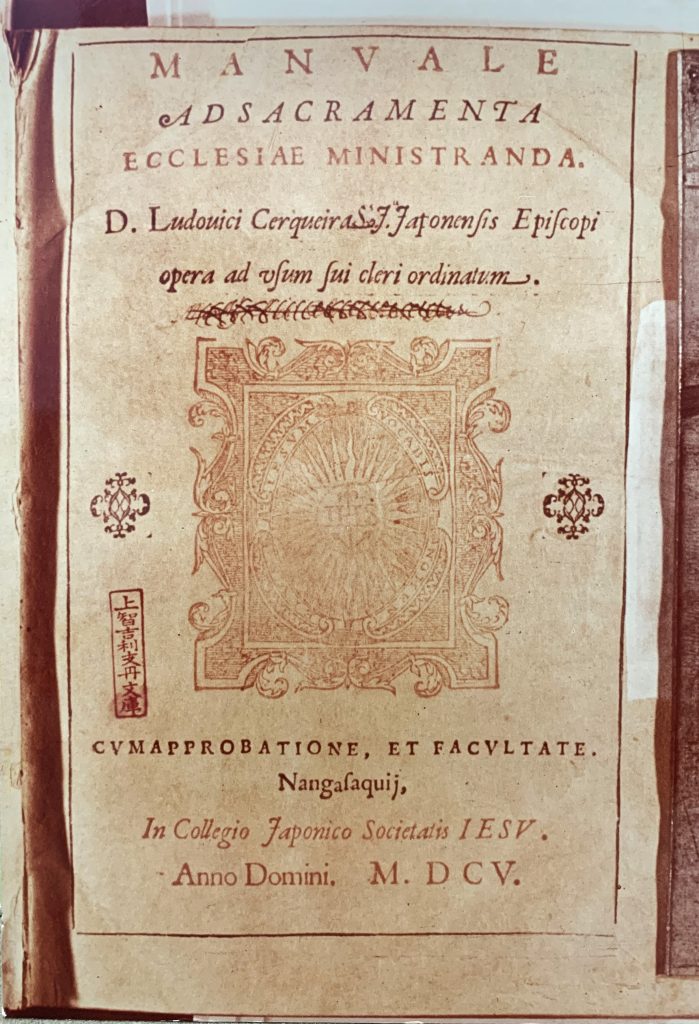 MANVALE
AD SACRAMENTA
ECCLESIAE MINISTRANDA.
D. Ludouici Cerqueira S. J. Japonenſis Epiſcopi
opera ad vſum ſui cleri ordinatum.
IESVM
VOCABIS
NOMEN
上智吉利支丹文庫
CVM APPROBATIONE, ET FACVLTATE.
Nangaſaquij,
In Collegio Japonico Societatis IESV.
Anno Domini. M. D C V.